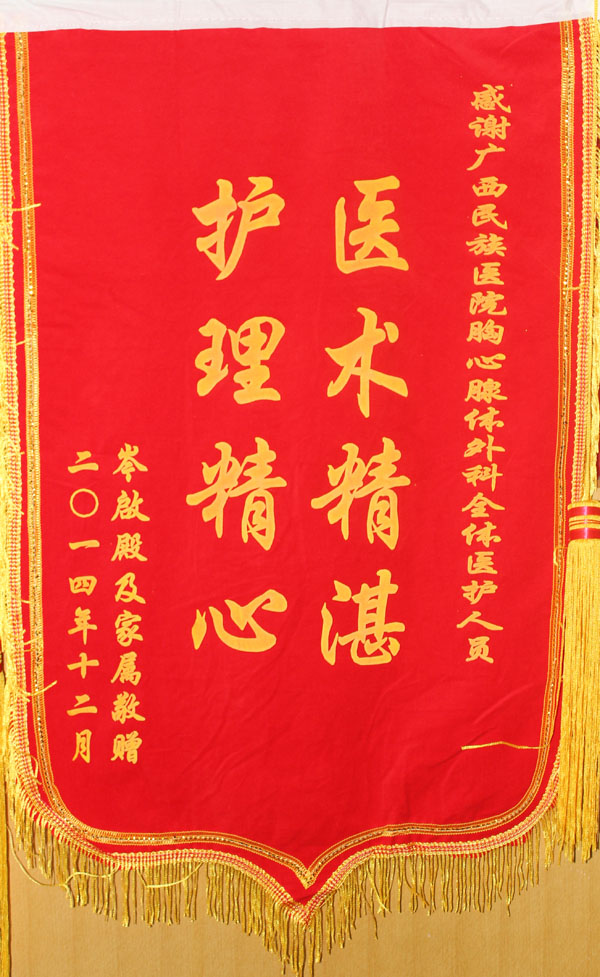 感谢广西民族医院胸心腺体外科全体医护人员
医术精湛
护理精心
岑啟殿及家属敬赠
二〇一四年十二月